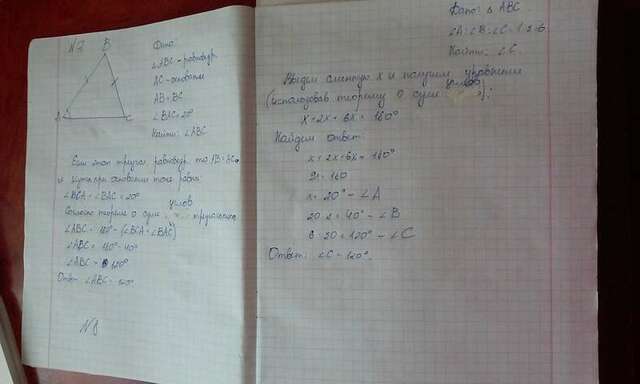 N 7
B
A
C
Дано:
∠ABC - равнобедр.
AC - основание
AB = BC
∠BAC = 20°
Найти: ∠ABC
Если этот треуг. равнобедр. то AB = BC
и углы при основании тоже равны.
∠BCA = ∠BAC = 20°
углов
Согласно теореме о сум. треугольника
∠ABC = 180° - (∠BCA + ∠BAC)
∠ABC = 180° - 40°
∠ABC = 120°
Отв: ∠ABC = 120°
N 8
Дано: Δ ABC.
∠A : ∠B : ∠C = 1:2:6
Найти: ∠C.
Введем сменную x и получим уравнение
углов
(использовав теорему о сум. ):
x + 2x + 6x = 180°
Найдем ответ:
x + 2x + 6x = 180°
9x = 180
x = 20° - ∠A
20·2 = 40° - ∠B
6·20 = 120° - ∠C
Ответ: ∠C = 120°.